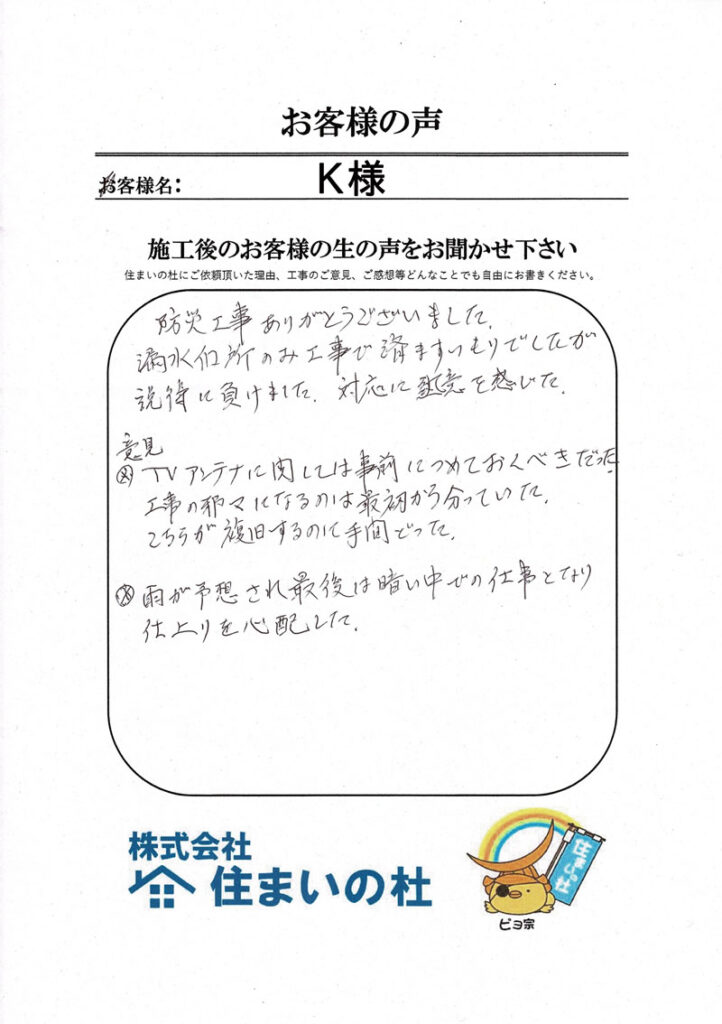 お客様の声
お客様名:
K様
施工後のお客様の生の声をお聞かせ下さい
住まいの杜にご依頼頂いた理由、工事のご意見、ご感想等どんなことでも自由にお書きください。
防災工事ありがとうございました.
漏水個所のみ工事で済ますつもりでしたが
説得に負けました. 対応に熱意を感じた.
意見
TVアンテナに関しては事前につめておくべきだった.
工事の邪マになるのは最初から分っていた.
こちらが復旧するのに手間どった.
雨が予想され最後は暗い中での仕事となり
仕上りを心配した.
株式会社
住まいの杜
住まいの杜
ピヨ宗